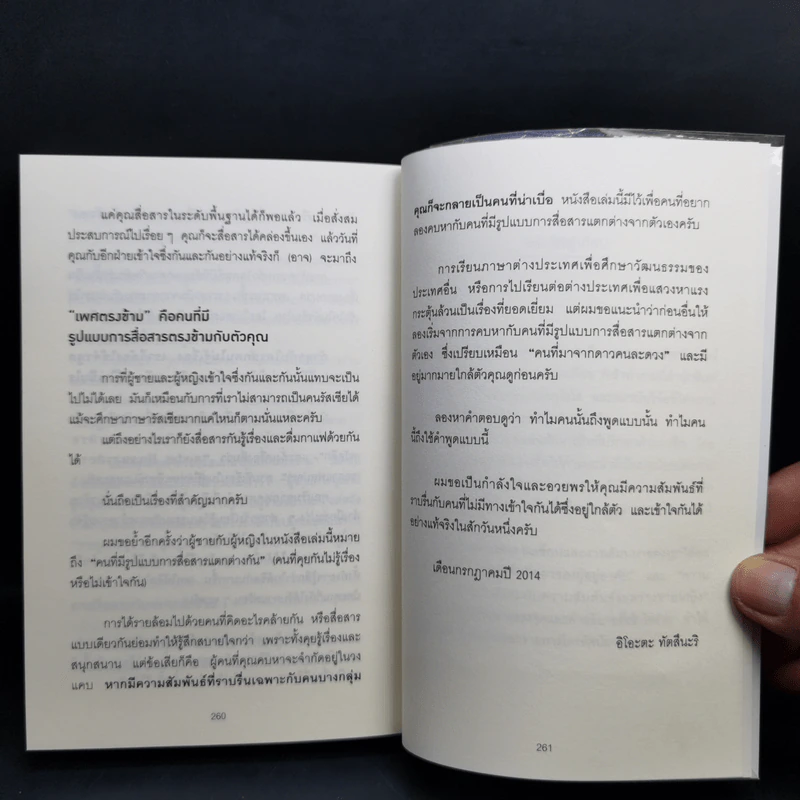 แค่คุณสื่อสารในระดับพื้นฐานได้ก็พอแล้ว เมื่อสั่งสม
ประสบการณ์ไปเรื่อยๆ คุณก็จะสื่อสารได้คล่องขึ้นเอง แล้ววันที่
คุณกับอีกฝ่ายเข้าใจซึ่งกันและกันอย่างแท้จริงก็ (อาจ) จะมาถึง
"เพศตรงข้าม" คือคนที่มี
รูปแบบการสื่อสารตรงข้ามกับตัวคุณ
การที่ผู้ชายและผู้หญิงเข้าใจซึ่งกันและกันนั้นแทบจะเป็น
ไปไม่ได้เลย มันก็เหมือนกับการที่เราไม่สามารถเป็นคนรัสเซียได้
แม้จะศึกษาภาษารัสเซียมากแค่ไหนก็ตามนั่นแหละครับ
แต่ถึงอย่างไรเราก็ยังสื่อสารกันรู้เรื่องและดื่มกาแฟด้วยกัน
ได้
นั่นถือเป็นเรื่องที่สำคัญมากครับ
ผมขอย้ำอีกครั้งว่าผู้ชายกับผู้หญิงในหนังสือเล่มนี้หมาย
ถึง "คนที่มีรูปแบบการสื่อสารแตกต่างกัน" (คนที่คุยกันไม่รู้เรื่อง
หรือไม่เข้าใจกัน)
การได้รายล้อมไปด้วยคนที่คิดอะไรคล้ายกัน หรือสื่อสาร
แบบเดียวกันย่อมทำให้รู้สึกสบายใจกว่า เพราะทั้งคุยรู้เรื่องและ
สนุกสนาน แต่ข้อเสียก็คือ ผู้คนที่คุณคบหาจะจำกัดอยู่ในวง
แคบ หากมีความสัมพันธ์ที่ราบรื่นเฉพาะกับคนบางกลุ่ม
260
คุณก็จะกลายเป็นคนที่น่าเบื่อ หนังสือเล่มนี้มีไว้เพื่อคนที่อยาก
ลองคบหากับคนที่มีรูปแบบการสื่อสารแตกต่างจากตัวเองครับ
การเรียนภาษาต่างประเทศเพื่อศึกษาวัฒนธรรมของ
ประเทศอื่น หรือการไปเรียนต่อต่างประเทศเพื่อแสวงหาแรง
กระตุ้นล้วนเป็นเรื่องที่ยอดเยี่ยม แต่ผมขอแนะนำว่าก่อนอื่นให้
ลองเริ่มจากการคบหากับคนที่มีรูปแบบการสื่อสารแตกต่างจาก
ตัวเอง ซึ่งเปรียบเหมือน "คนที่มาจากดาวคนละดวง" และมี
อยู่มากมายใกล้ตัวคุณดูก่อนครับ
ลองหาคำตอบดูว่า ทำไมคนนั้นถึงพูดแบบนั้น ทำไมคน
นี้ถึงใช้คำพูดแบบนี้
ผมขอเป็นกำลังใจและอวยพรให้คุณมีความสัมพันธ์ที่
ราบรื่นกับคนที่ไม่มีทางเข้าใจกันได้ซึ่งอยู่ใกล้ตัว และเข้าใจกันได้
อย่างแท้จริงในสักวันหนึ่งครับ
เดือนกรกฎาคมปี 2014
อิโอะตะ ทัตสึนะริ
261